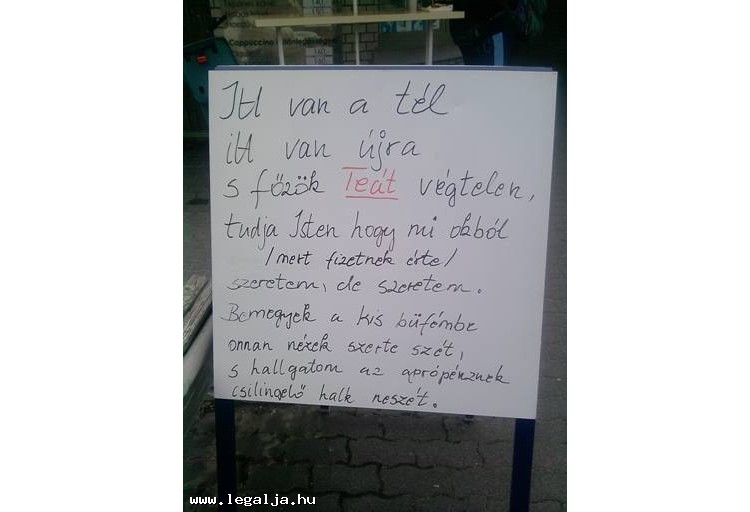 Cappuccino
Itt van a tél
itt van újra
s főzök Teát végtelen,
tudja Isten hogy mi okból
/mert fizetnek érte/
szeretem, de szeretem.
Bemegyek a kis büfémbe
onnan nézek szerte szét,
s hallgatom az aprópénznek
csilingelő halk neszét.
www.legalja.hu